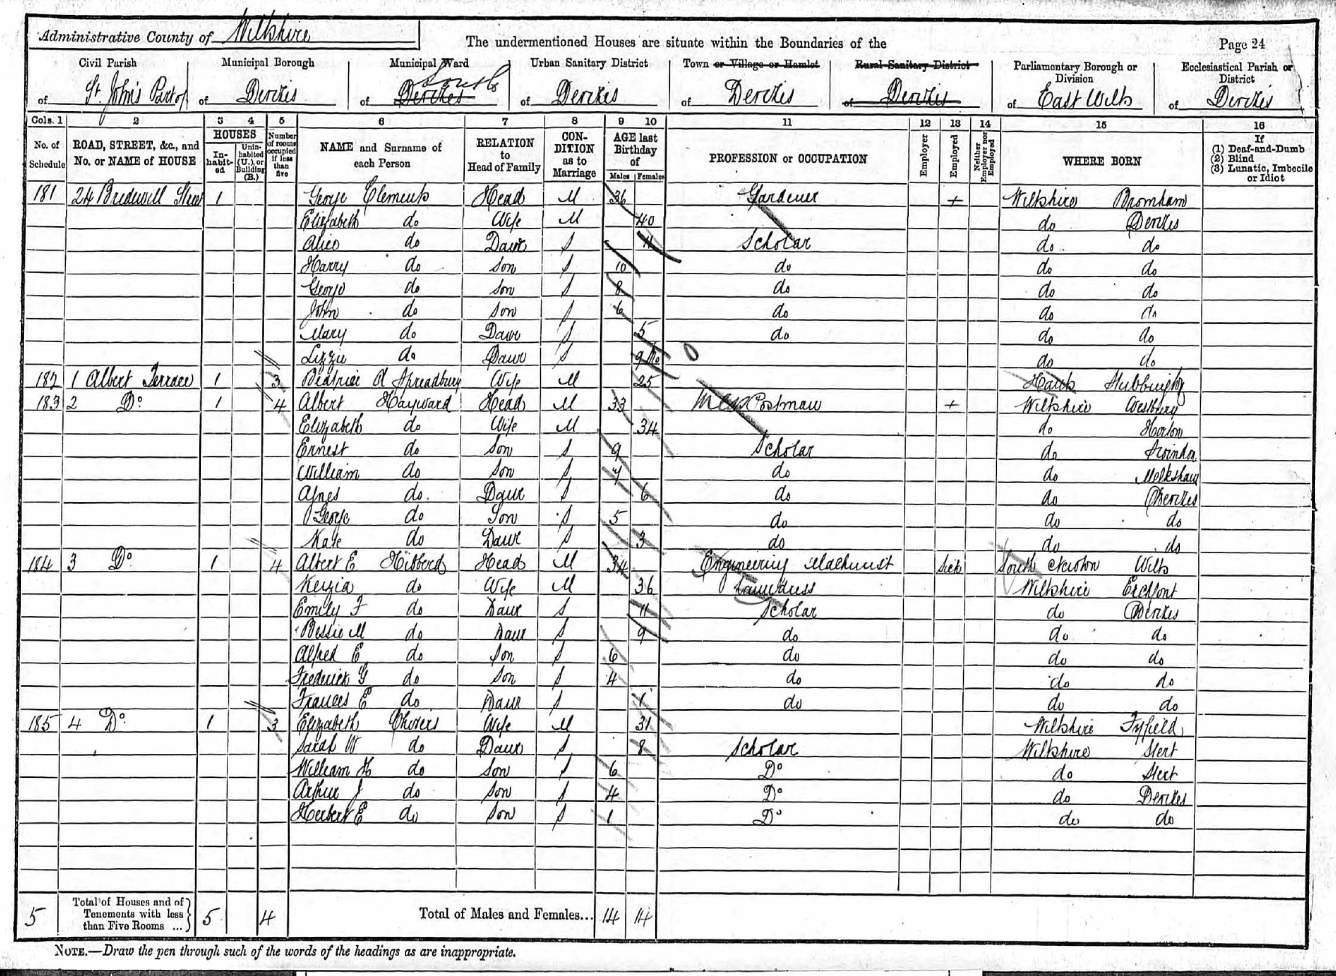 Administrative County of Wiltshire
The undermentioned Houses are situate within the Boundaries of the
Page 24
Civil Parish Municipal Borough Municipal Ward Urban Sanitary District Town or Village or Hamlet Rural Sanitary District Parliamentary Borough or Division Ecclesiastical Parish or District
of St John's Part of of Devizes of Devizes South of Devizes of Devizes of Devizes of East Wilts of Devizes
Cols. 1 2 3 4 5 6 7 8 9 10 11 12 13 14 15 16
No. of Schedule ROAD, STREET, &c., and No. or NAME of HOUSE HOUSES In-habit-ed Unin-habited (U.) or Building (B.) Number of rooms occupied if less than five NAME and Surname of each Person RELATION to Head of Family CON-DITION as to Marriage AGE last Birthday of Males Females PROFESSION or OCCUPATION Employer Employed Neither Employer nor Employed WHERE BORN If (1) Deaf-and-Dumb (2) Blind (3) Lunatic, Imbecile or Idiot
181 24 Bridewell Street 1 George Clements Head M 36 Gardener + Wiltshire Bromham
Elizabeth do Wife M 40 do Devizes
Alice do Daur S 11 Scholar do do
Harry do Son S 10 do do do
George do Son S 8 do do do
John do Son S 6 do do do
Mary do Daur S 5 do do do
Lizzie do Daur S 9 mo do do
182 1 Albert Terrace 1 3 Beatrice A Spreadbury Wife M 25 Hants
183 2 Do 1 4 Albert Hayward Head M 33 Postman + Wiltshire Westbury
Elizabeth do Wife M 34 do Horton
Ernest do Son S 9 Scholar do Swindon
William do Son S 7 do do Melksham
Agnes do Daur S 6 do do Devizes
George do Son S 5 do do do
Kate do Daur S 3 do do do
184 3 Do 1 4 Albert E Hibberd Head M 34 Engineering Machinist Sick South Newton Wilts
Keziah do Wife M 36 Laundress Wiltshire Erchfont
Emily F do Daur S 11 Scholar do Devizes
Bessie M do Daur S 9 do do do
Alfred E do Son S 6 do do do
Frederick G do Son S 4 do do do
Frances E do Daur S 1 do do do
185 4 Do 1 3 Elizabeth Chivers Wife M 31 Wiltshire Fyfield
Sarah W do Daur S 8 Scholar Wiltshire Stert
William H do Son S 6 Do do Stert
Arthur J do Son S 4 Do do Devizes
Herbert E do Son S 1 Do do do
5 Total of Houses and of Tenements with less than Five Rooms ... 5 4 Total of Males and Females... 14 14
NOTE.—Draw the pen through such of the words of the headings as are inappropriate.